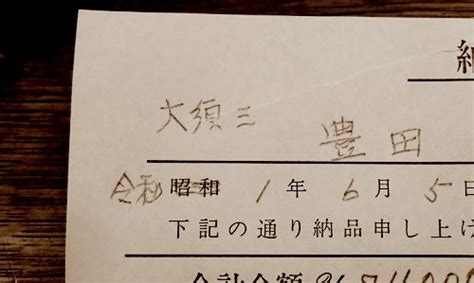 納
大須三
豊田
令和 昭和 1年 6月 5日
下記の通り納品申し上げ
合計金額